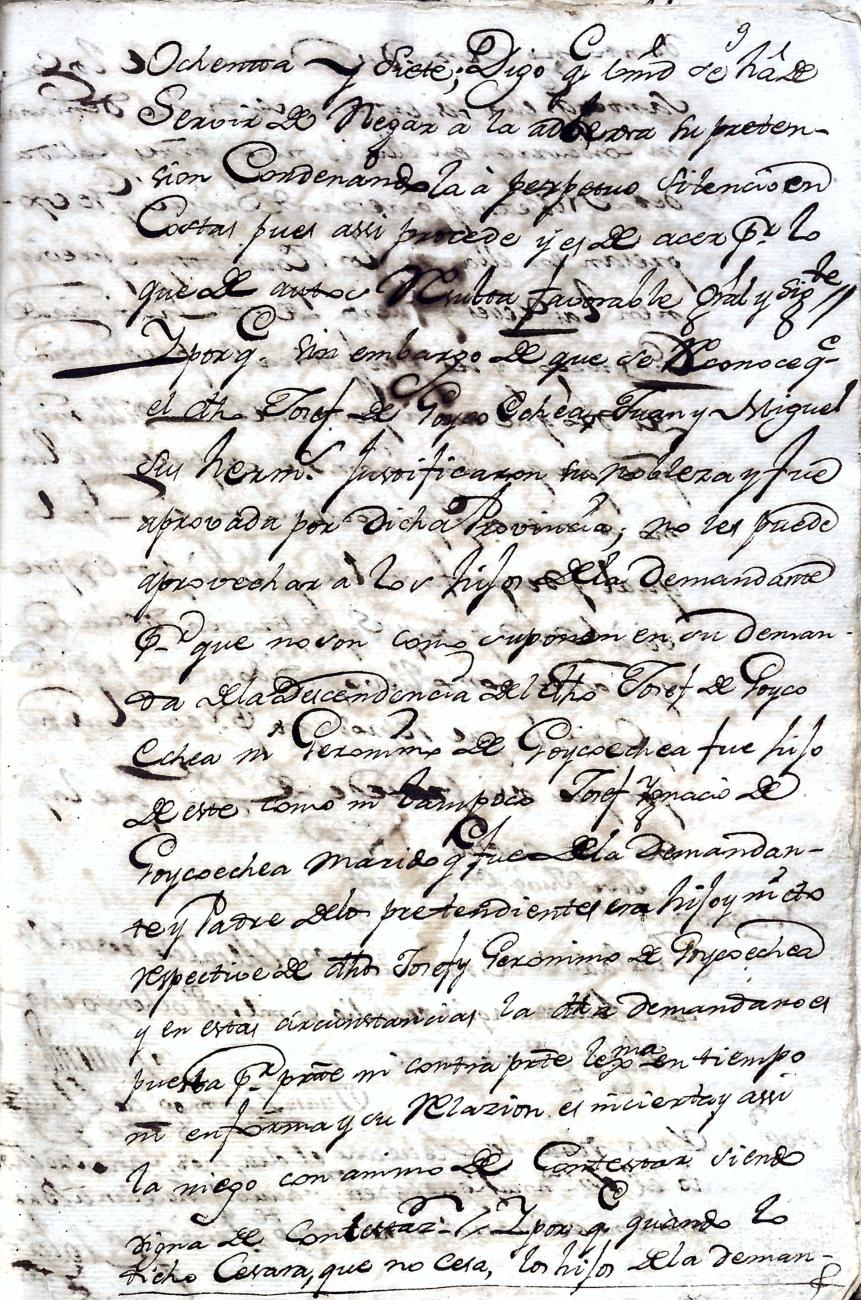 9
Ochenta y Siete; Digo q.e Vmd se ha de
Servir de Negar a la adversa su preten-
sion Condenandola à perpetuo silencio en
Costas pues assi procede y es de acer p.r lo
que de autos Resulta favorable Gral y sig.te //
Y porq. sin embargo de que se Reconoce q.e
el dho Josef de Goycoechea, Juan y Miguel
sus herm.s Justificaron su nobleza y fue
aprovada por dicha Provincia; no les puede
aprovechar a los hijos de la Demandante
p.r que no son como suponen en su deman-
da de la Descendencia del dho Josef de Goyco
echea ni Geronimo de Goycoechea fue hijo
de este como ni tampoco Josef Ygnacio de
Goycoechea marido q.e fue de la Demandan-
te y Padre de los pretendientes era hijo y nieto
respective de dhos Josef y Geronimo de Goycoechea
y en estas circunstancias la dha demanda no es
puesta p.r parte ni contra parte lexma en tiempo
ni en forma y su Relazion es incierta y assi
la niego con animo de Contestar siendo
digna de Contestaz.n // Y porq. quando lo
dicho Cesara, que no cesa, los hijos de la deman-